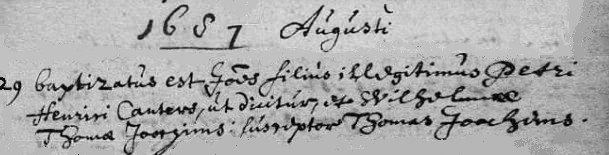 1687 Augusti
29 baptizatus est Joes filius illegitimus Petri
Henrici Canters, ut dicitur, et Wilhelmae
Thomae Joachims: susceptor Thomas Joachims.